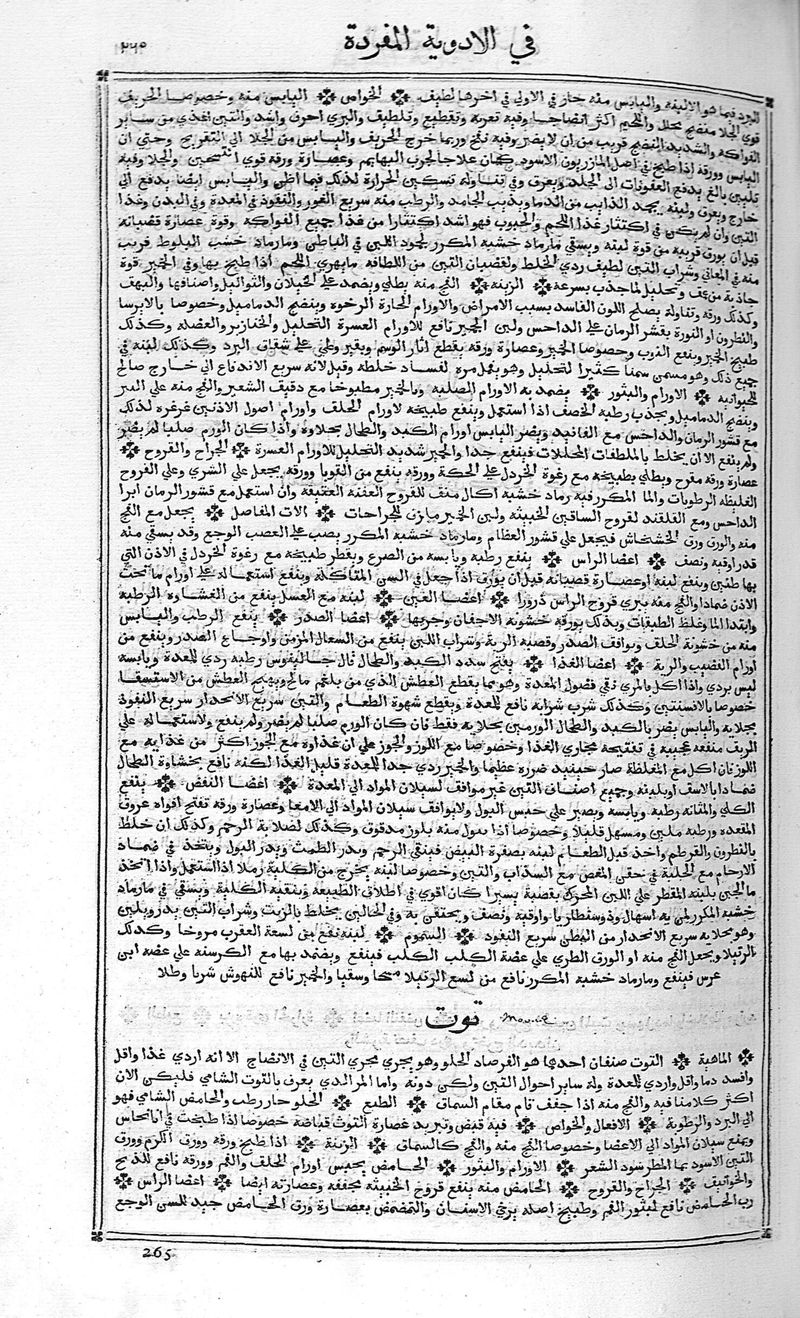 في الادوية المفردة
٢٦٥
البرد فيما هو الالينه واليابس منه حار في الاولي في اخرها لطيف ❊ الخواص ❊ اليابس منه وخصوصا الحريف
قوي الجلا منضج محلل واللحيم اكثر انضاجا وفيه تغرية وتقطيع وتلطيف والبري احرف واشد والتين اغذي من ساير
الفواكه والشديد النضج قريب من ان لا يضر وفيه نفخ وربما خرج الحريف واليابس من الجلا الي التقريح وحتي ان
اليابس وورقه اذا طبخ في اصل المازريون الاسود كان علاجا لجرب البهايم وعصارة ورقه قوي التسخين والجلا وفيه
تليين بالغ يدفع العفونات الي الجلد ويعرق وفي تناوله تسكين الحرارة لذلك فيما اظن واليابس ايضا يدفع الي
خارج ويعرق ولبنه يجمد الذايب من الدما ويذيب الجامد والرطب منه سريع الغور والنفوذ في المعدة وفي البدن وغذا
التين وان لم يكن في اكتناز غذا اللحم والحبوب فهو اشد اكتنازا من غذا جميع الفواكه وقوة عصارة قضبانه
قبل ان يورق قريبه من قوة لبنه ويسقي ماء رماد خشبه المكرر لجمود اللبن في الباطن وماء رماد خشب البلوط قريب
منه في المعاني وشراب التين لطيف ردي الخلط ولقضبان التين من اللطافه ما يهري اللحم اذا طبخ بها وفي الجميز قوة
جاذبة من عمق وتحليل لما جذب بسرعة ❊ الزينة ❊ الفج منه يطلي ويضمد علي الخيلان والثواليل واصنافها والبهق
وكذلك ورقه وتناوله يصلح اللون الفاسد بسبب الامراض والاورام الحارة الرخوه وينضج الدماميل وخصوصا بالايرسا
والنطرون او النورة بقشر الرمان علي الداحس ولبن الجميز نافع للاورام العسرة التحليل والخنازير والعضله وكذلك
طبيخ الجميز وينفع الذوب وخصوصا الجميز وعصارة ورقه يقطع اثار الوسم وبقير وطي علي شقاق البرد وكذلك لبنه في
جميع ذلك وهو مسمن سمنا كثيرا لتحليل وهو يقمل مره لفساد خلطه وقيل لانه سريع الاندفاع الي خارج صالح
للحيوانية ❊ الاورام والبثور ❊ يضمد به الاورام الصلبه وبالجميز مطبوخا مع دقيق الشعير والفج منه علي البثر
وينضج الدماميل ويجذب رطبه الحصف اذا استعمل وينفع طبيخه لاورام الحلف واورام اصول الاذنين غرغره لذلك
مع قشور الرمان والداحس مع الفانيد ويضر اليابس اورام الكبد والطحال بحلاوه واذا كان الورم صلبا لم يضر
ولم ينفع الا ان يخلط بالملطفات المحللات فينفع جدا والجميز شديد التحليل للاورام العسرة ❊ الجراح والقروح ❊
عصارة ورقه مقرح ويطلي بطبيخه مع رغوة الخردل علي الحكة وورقه ينفع من القوبا وورقه يجعل علي الشري وعلي القروح
الغليظه الرطوبات والما المكرر فيه رماد خشبه اكال منقي للقروح العفنه العتيقة وان استعمل مع قشور الرمان ابرا
الداحس ومع القلقند لقروح الساقين الخبيثه ولبن الجميز ملزق للجراحات ❊ الات المفاصل ❊ يجعل مع الفج
منه والورق ورق الخشخاش فيجعل علي قشور العظام وماء رماد خشبه المكرر يصب علي العصب الوجع وقد يسقي منه
قدر اوقيه ونصف ❊ اعضا الراس ❊ ينفع رطبه ويابسه من الصرع ويقطر طبيخه مع رغوة الخردل في الاذن التي
بها طنين وينفع لبنه او عصارة قضبانه قبل ان يورق اذا جعل في السن المتاكله وينفع استعماله علي اورام ما تحت
الاذن ضمادا والفج منه يبري قروح الراس ذرورا ❊ اعضا العين ❊ لبنه مع العسل ينفع من الغشاوه الرطبه
وابتدا الما وغلظ الطبقات ويدلك بورقه خشونه الاجفان وجربها ❊ اعضا الصدر ❊ ينفع الرطب واليابس
منه من خشونة الحلف ويوافف الصدر وقصبه الرية وشراب اللبن ينفع من السعال المزمن واوجاع الصدر وينفع من
اورام القصيب والرية ❊ اعضا الغذا ❊ يفتح سدد الكبد والطحال قال جالينوس رطبه ردي للمعدة ويابسه
ليس بردي واذا اكل بالمري نقي فضول المعدة وهو مما يقطع العطش الذي من بلغم مالح ويهيج العطش من الاستسقا
خصوصا بالافسنتين وكذلك شرب شرابه نافع للمعدة ويقطع شهوة الطعام والتين سريع الانحدار سريع النفوذ
بجلايه واليابس يضر بالكبد والطحال الورمين بحلايه فقط فان كان الورم صلبا لم يضر ولم ينفع ولاستعماله علي
الريف منفعه عجيبه في تفتيحه مجاري الغذا وخصوصا مع اللوز والجوز علي ان غذاوه مع الجوز اكثر من غذايه مع
اللوز فان اكل مع المغلظة صار حينيذ ضرره عظيما والجميز ردي جدا للمعدة قليل الغذا لكنه نافع بخشاوة الطحال
ضمادا بالاسف او بلبنه وجميع اصناف التين غير موافف لسيلان المواد الي المعدة ❊ اعضا النفض ❊ ينفع
الكلي والمثانه رطبه ويابسه ويصبر علي حبس البول ولا يوافف سيلان المواد الي الامعا وعصارة ورقه تفتح افواه عروق
المقعده ورطبه ملين ومسهل قليلا وخصوصا اذا بسول منه بلوز مدقوق وكذلك لصلابة الرحم وكذلك ان خلط
بالنطرون والقرطم واخذ قبل الطعام لبنه بصفرة البيض فينقي الرحم ويدر الطمث ويدر البول ويتخذ في ضماد
الارحام مع الحلبة في حقن المغص مع السذاب والتين وخصوصا لبنه يخرج من الكلية رملا اذا استعمل واذا اتخذ
ما الجبن بلبنه المقطر علي اللبن المحرك بقضيبه يسيرا كان اقوي في اطلاق الطبيعه وبنقيه الكلية ويسقي في ماء رماد
خشبه المكرر لمن به اسهال وذوسنطاريا اوقيه ونصف ويحتقن به وفي الحالين يخلط بالزيت وشراب التين يدر ويلين
وهو بحلايه سريع الانحدار من البطن سريع النفود ❊ السموم ❊ لبنه نفع من لسعة العقرب مروخا وكذلك
الرتيلا ويجعل الفج منه او الورق الطري علي عضة الكلب الكلب فينفع ويضمد بها مع الكرسنه علي عضه ابن
عرس فينفع وماء رماد خشبه المكرر نافع من لسع الرتيلا مسحا وسقيا والجميز نافع للنهوش شربا وطلا
توت
❊ الماهية ❊ التوت صنفان احدها هو الفرصاد الحلو وهو يجري مجري التين في الانضاج الا انه اردي غذا واقل
وافسد دما واقل واردي للمعدة وله ساير احوال التين ولكن دونه واما المر الذي يعرف بالتوت الشامي فليكن الان
اكثر كلامنا فيه والفج منه اذا جفف قام مقام السماق ❊ الطبع ❊ الحلو حار رطب والحامض الشامي فهو
الي البرد والرطوبة ❊ الافعال والخواص ❊ فيه قبض وتبريد عصارة التوت قباضة خصوصا اذا طبخت في انا نحاس
ويمنع سيلان المواد الي الاعضا وخصوصا الفج منه والفج كالسماق ❊ الزينة ❊ اذا طبخ ورقه وورق الكرم وورق
التين الاسود بما المطر سود الشعر ❊ الاورام والبثور ❊ الحامض يحبس اورام الحلف والفم وورقه نافع للذبح
والخوانيف ❊ الجراح والقروح ❊ الحامض منه ينفع قروح الخبيثه مجففه وعصارته ايضا ❊ اعضا الراس ❊
رب الحامض نافع لبثور الفم وطبيخ اصله يرخي الاسنان والتمضمض بعصارة ورق الحامض جيد للسن الوجع
265